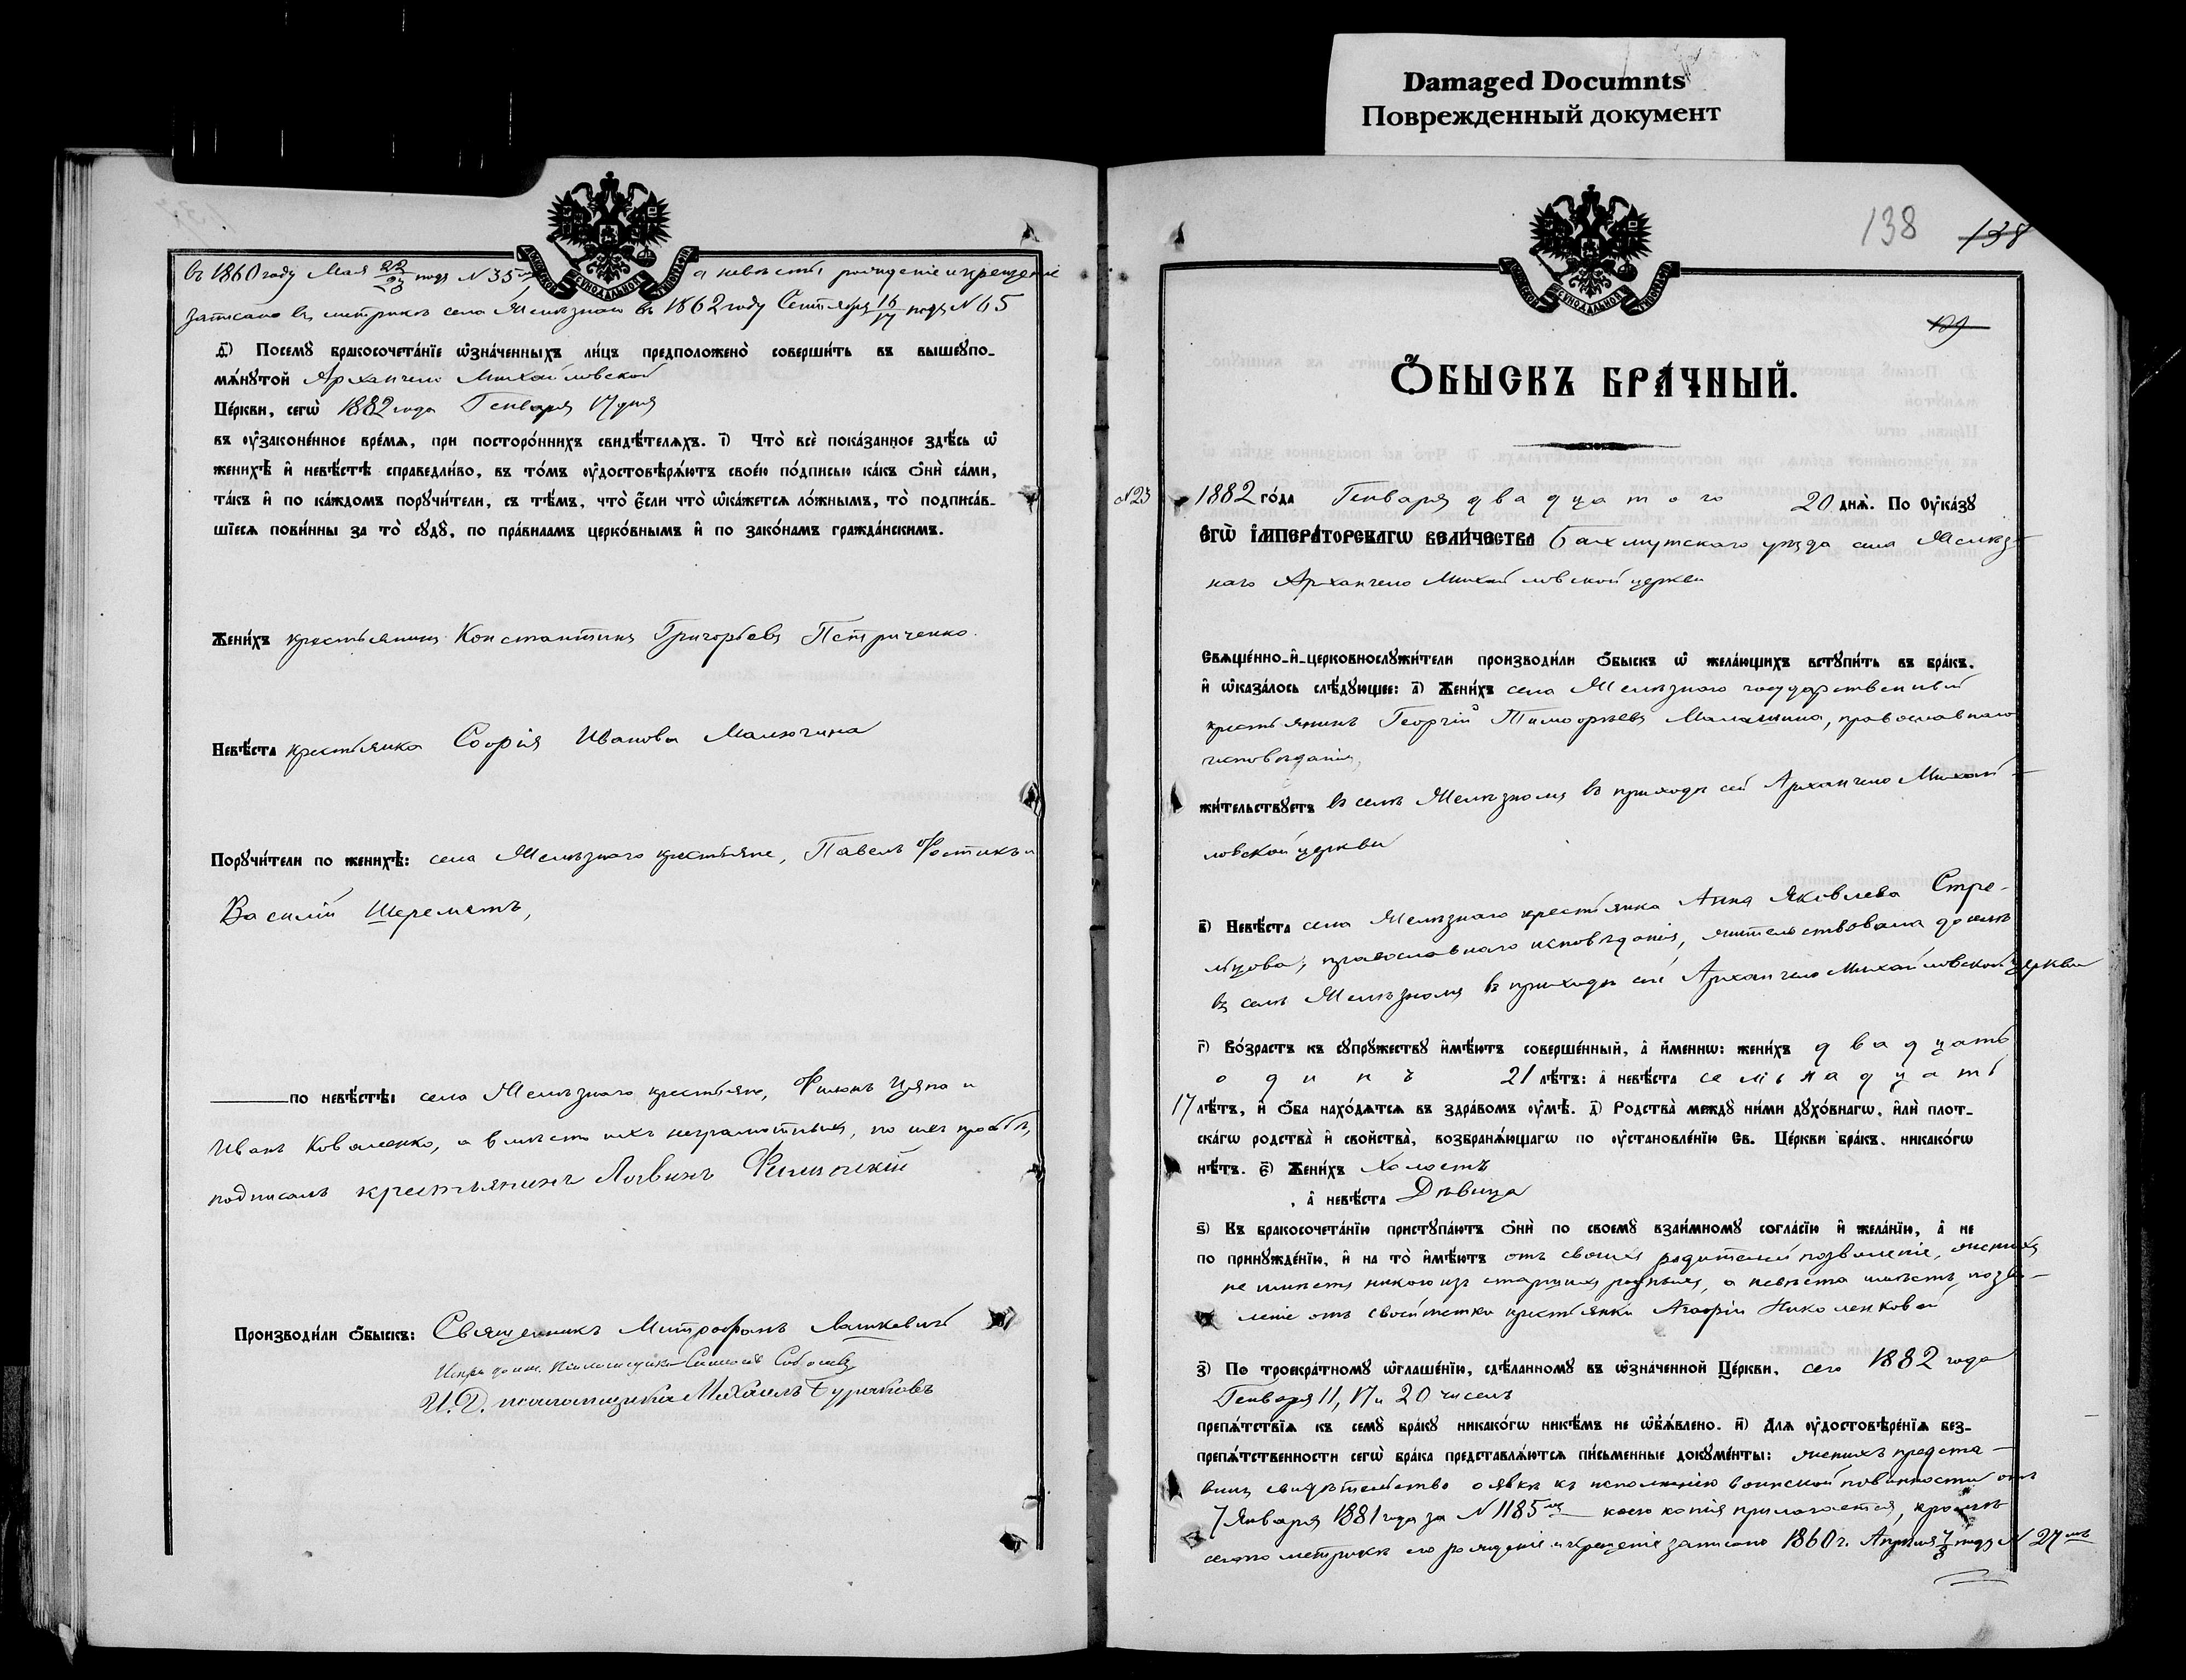 Damaged Documnts
Поврежденный документ
въ 1860 году Мая 22/23 подъ N 35мъ, а невѣсты рожденіе и крещеніе
записано въ метрикѣ села Желѣзнаго въ 1862 году Сентября 16/17 подъ N 65
д҃) Посемꙋ бракосочета́нїе ѡ҆зна́ченныхъ ли́цъ предположено̀ соверши́ть въ вышеꙋпо-
мѧ́нꙋтой Архангело Михайловской
Це́ркви, сегѡ̀ 1882 года Генваря 17 дня
въ ᲂу҆законе́нное вре́мѧ, при посторо́ннихъ свидѣ́телѧхъ. і҃) Что̀ всѐ пока́занное здѣ́сь ѡ҆
женихѣ̀ и҆ невѣ́стѣ справедли́во, въ то́мъ ᲂу҆достовѣрѧ́ютъ свое́ю по́дписью ка́къ ѻ҆нѝ са́ми,
та́къ и҆ по ка́ждомъ порꙋчи́тели, съ тѣ́мъ, что̀ є҆́сли что̀ ѡ҆ка́жетсѧ ло́жнымъ, то̀ подписа́в-
шїесѧ пови́нны за то̀ сꙋдꙋ̀, по пра́виламъ церко́внымъ и҆ по зако́намъ гражда́нскимъ.
Жени́хъ крестьянинъ Константинъ Григорьевъ Петриченко.
Невѣ́ста крестьянка Софія Иванова Малючина
Порꙋчи́тели по женихѣ̀: села Желѣзнаго крестьяне, Павелъ Фостикъ и
Василій Шереметъ,
по невѣ́стѣ: села Желѣзнаго крестьяне, Филипъ Цяпа и
Иванъ Коваленко, а вмѣсто ихъ неграмотныхъ, по ихъ прозьбѣ,
подписалъ крестьянинъ Логвинъ
Производи́ли ѻ҆́быскъ: Священникъ Митрофанъ
И. Д. псаломщика Михаилъ Бураковъ
138
138
139
Ѻ҆́БЫСКЪ БРА́ЧНЫЙ.
N23
1882 го́да Генваря двадцатого 20 днѧ̀. По Оу҆ка́зꙋ
ЄГѠ̀ І҆МПЕРА́ТОРСКАГѠ ВЕЛИ́ЧЕСТВА Бахмутскаго уѣзда села Желѣз-
наго Архангело Михайловской церкви
Свѧще́нно-и҆-церковнослꙋжи́тели производи́ли ѻ҆́быскъ ѡ҆ жела́ющихъ встꙋпи́ть въ бра́къ,
и҆ ѡ҆каза́лось слѣ́дꙋющее: а҃) Жени́хъ села Желѣзнаго государственный
крестьянинъ Георгій Тимофѣевъ Малашина, православнаго
исповѣданія,
жи́тельствꙋетъ въ селѣ Желѣзномъ въ приходѣ сей Архангело Михай-
ловской церкви
в҃) Невѣ́ста села Желѣзнаго крестьянка Анна Яковлева Стре-
льцова, православнаго исповѣданія, жительствовала доселѣ
въ селѣ Желѣзномъ въ приходѣ сей Архангело Михайловской церкви
г҃) Во́зрастъ къ сꙋпрꙋ́жествꙋ и҆мѣ́ютъ соверше́нный, а҆ и҆́меннѡ: жени́хъ двадцать
одинъ 21 лѣ́тъ: а҆ невѣ́ста семьнадцать
17 лѣ́тъ, и҆ ѻ҆́ба нахо́дѧтсѧ въ здра́вомъ ᲂу҆мѣ̀. д҃) Родства̀ междꙋ̀ ни́ми дꙋхо́внагѡ, и҆лѝ плот-
ска́гѡ родства̀ и҆ свойства̀, возбранѧ́ющагѡ по ᲂу҆становле́нїю Св. Це́ркви бра́къ, никако́гѡ
нѣ́тъ. є҃) Жени́хъ холостъ
, а҆ невѣ́ста Дѣвица
ѕ҃) Къ бракосочета́нїю пристꙋпа́ютъ ѻ҆нѝ по своемꙋ̀ взаи́мномꙋ согла́сїю и҆ жела́нїю, а҆ не
по принꙋжде́нїю, и҆ на то̀ и҆мѣ́ютъ отъ своихъ родителей позволеніе, женихъ
не имѣетъ никого изъ старшихъ родныхъ, а невѣста имѣетъ позво-
леніе отъ своей тетки крестьянки Агафіи Николенковой
з҃) По троекра́тномꙋ ѡ҆глаше́нїю, сдѣ́ланномꙋ въ ѡ҆зна́ченной Це́ркви, сего 1882 года
Генваря 11, 17 и 20 чиселъ
препѧ́тствїѧ къ семꙋ̀ бра́кꙋ никако́гѡ никѣ́мъ не ѡ҆б̾ѧ́влено. и҃) Длѧ ᲂу҆достовѣре́нїѧ без-
препѧ́тственности сегѡ̀ бра́ка представлѧ́ютсѧ пи́сьменные докꙋме́нты: женихъ предста-
вилъ свидѣтельство о явкѣ къ исполненію воинской повинности отъ
7 Января 1881 года за N 1185мъ коего копія прилагается, кромѣ
сего по метрикѣ его рожденіе и крещеніе записано 1860 г. Апрѣля 7/8 подъ N 27мъ